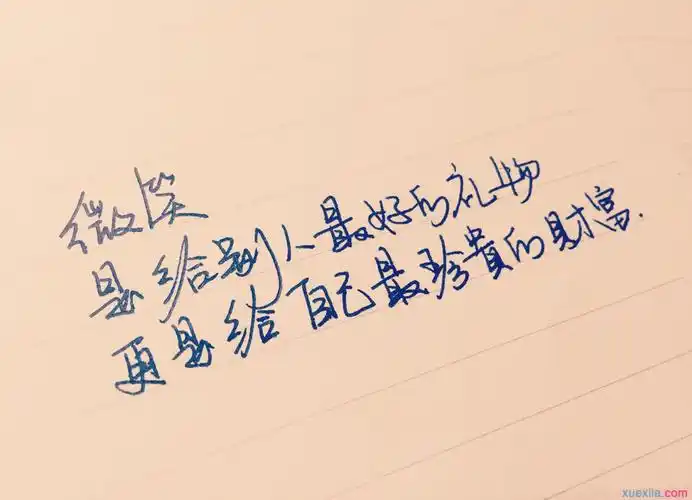 微笑
是给别人最好的礼物
更是给自己最珍贵的财富.
xuexila.com